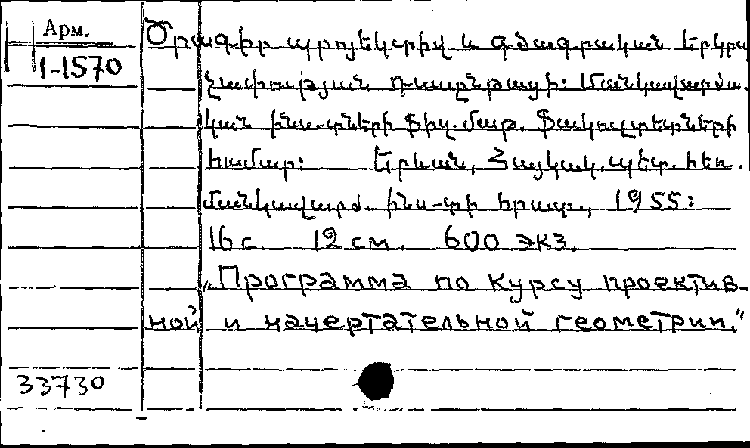 Арм.
1-1570
Ծրագիր պրոյեկտիվ և գծագրական երկրա
չափության դասընթացի: Մանկավարժա-
կան ինս-տների ֆիզ. մաթ. ֆակուլտետների
համար: Երևան, Հայկակ. պետ. հեռ.
մանկավարժ. ինս-տի հրատ., 1955:
16 с. 12 см. 600 экз.
„Программа по курсу проектив-
ной и начертательной геометрии."
33730